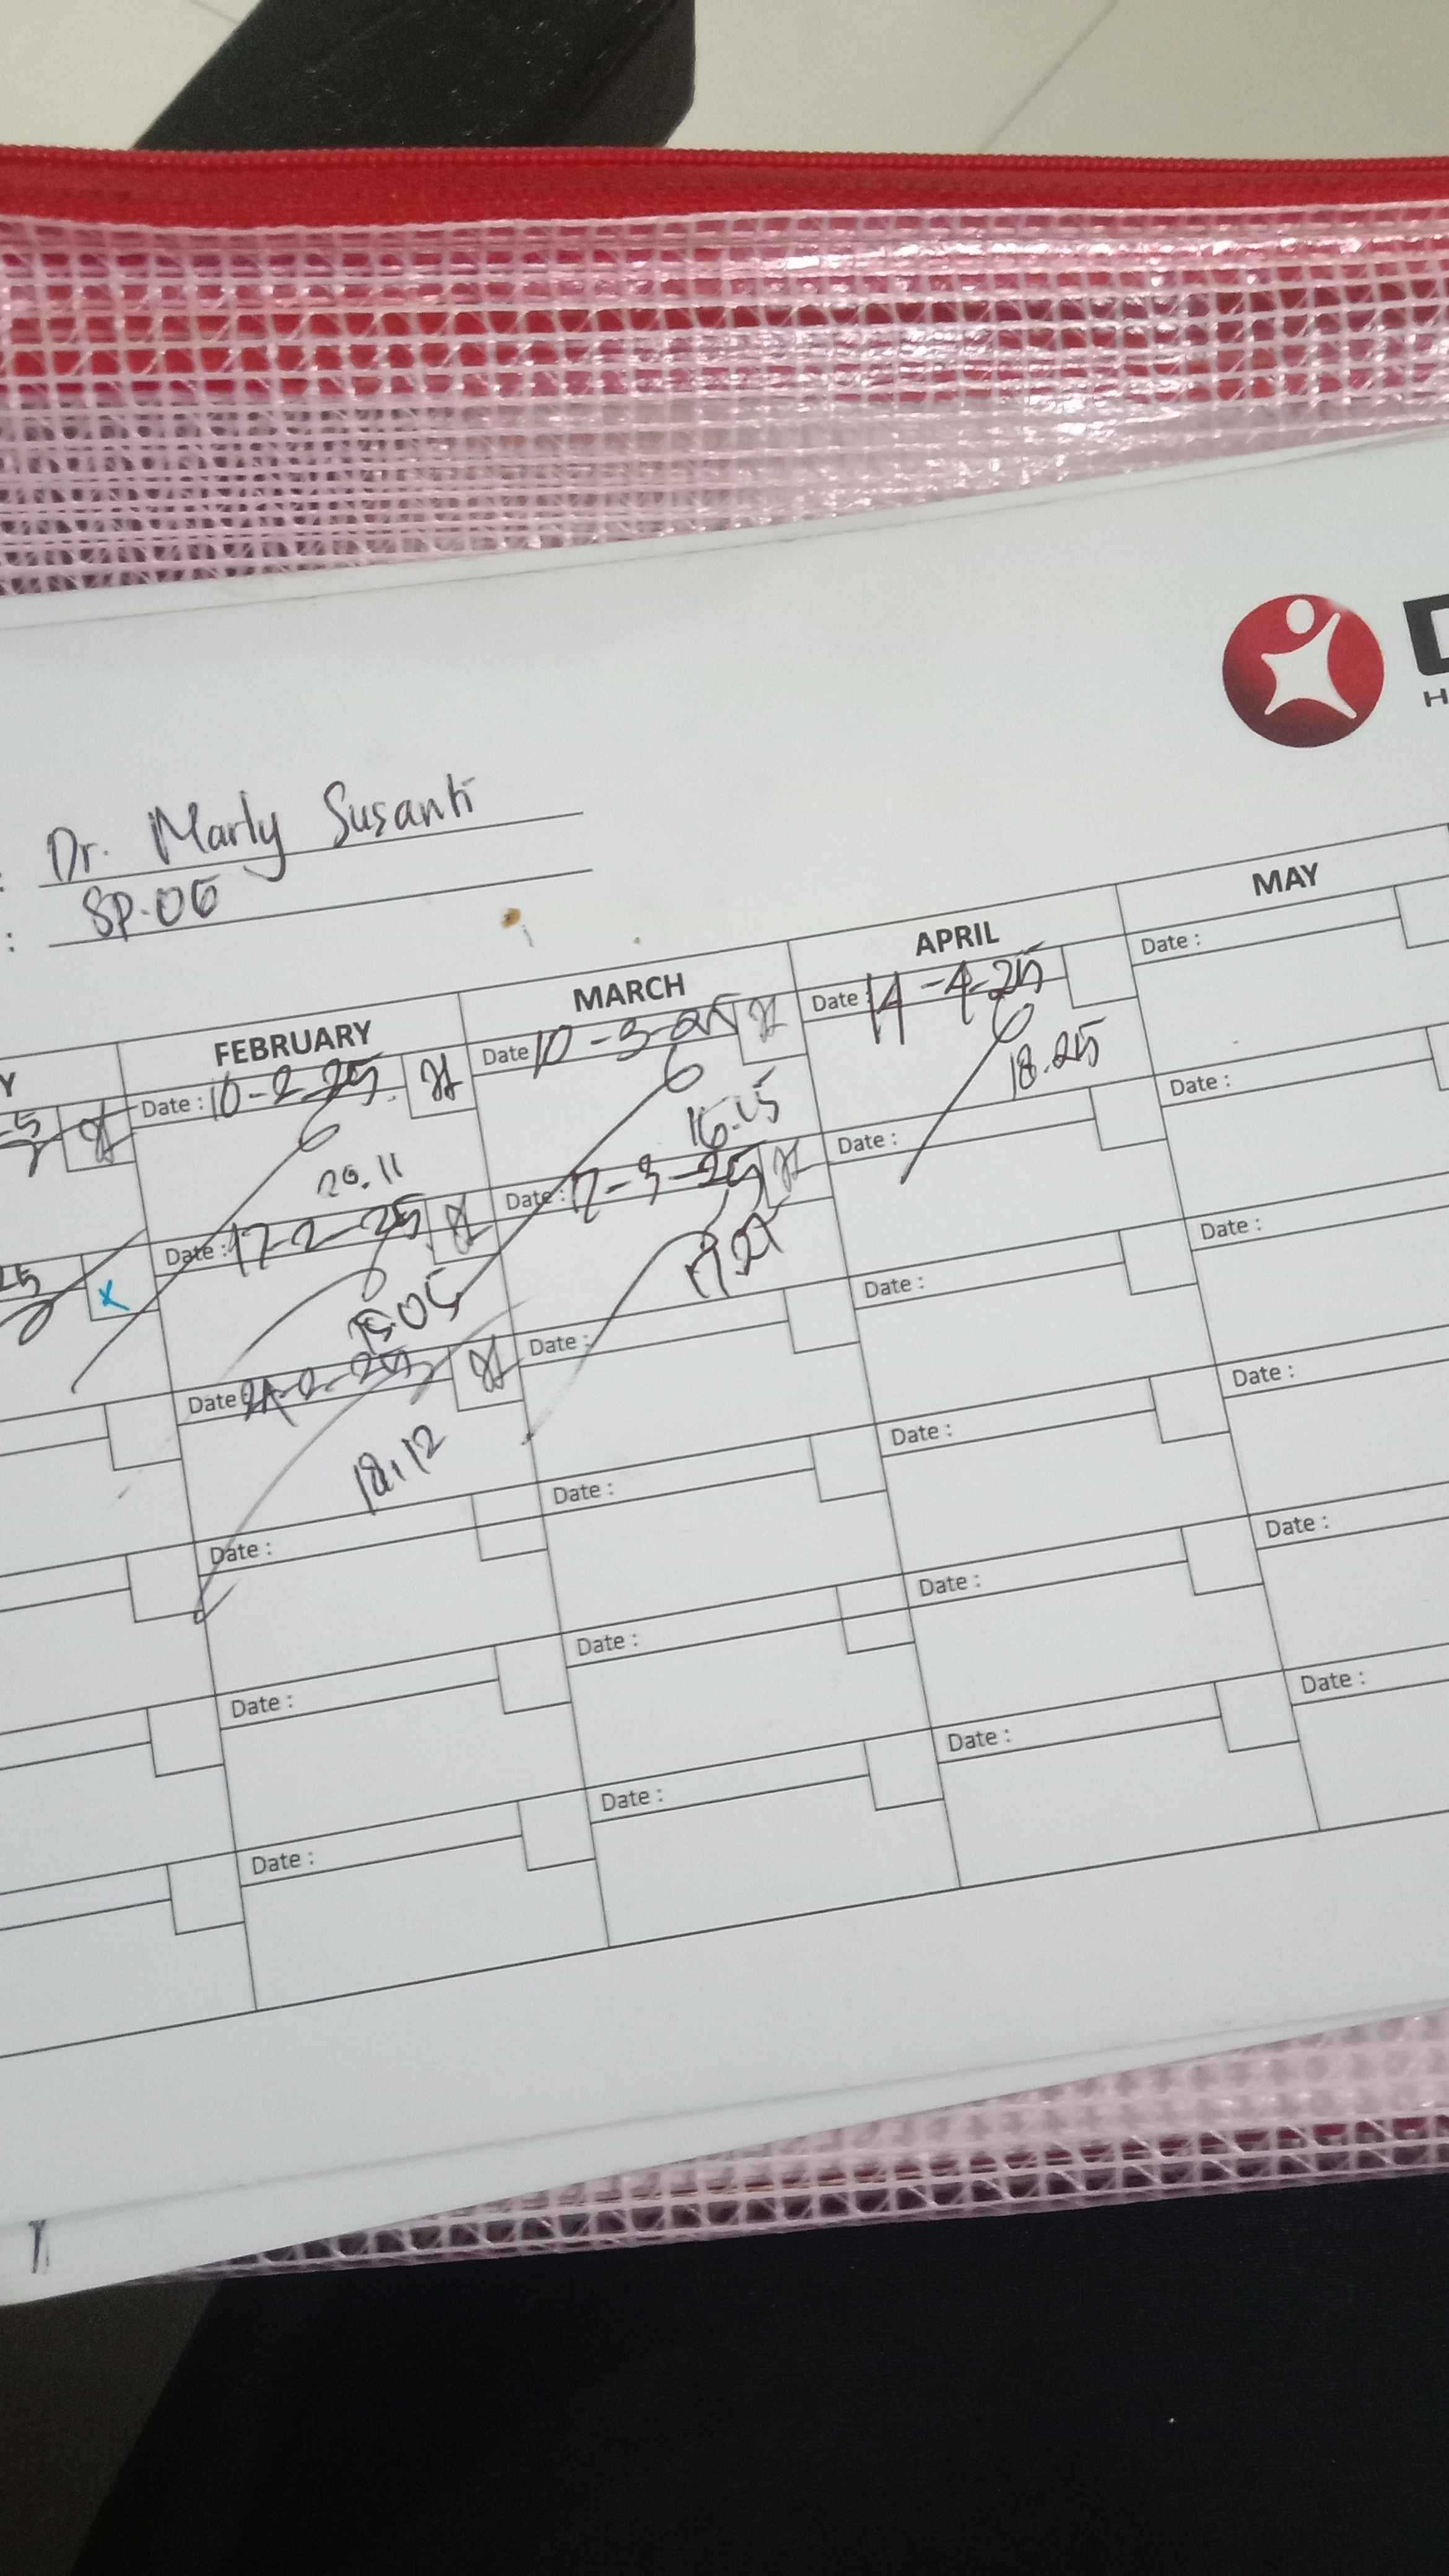 D
H
: Dr. Marly Susanti
: SP.OG
FEBRUARY MARCH APRIL MAY
Date : 10-2-25. Date 10-3-25 Date : 14-4-25 Date :
20.11 16.15 18.25
Date : 17-2-25 Date : 17-3-25 Date : Date :
19.05
Date 24-2-25 Date : Date : Date :
18.12
Date : Date : Date : Date :
Date : Date : Date : Date :
Date : Date : Date : Date :